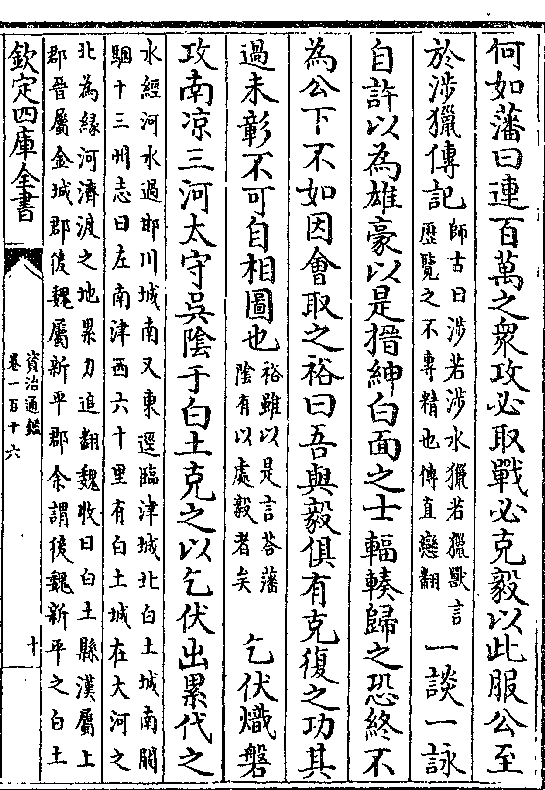 何如藩曰連百萬之衆攻必取戰必克毅以此服公至
於涉獵傳記師古曰涉若涉水獵若獵獸言
歷覽之不專精也傳直戀翻一談一詠
自許以為雄豪以是搢紳白面之士輻輳歸之恐終不
為公下不如因會取之裕曰吾與毅俱有克復之功其
過未彰不可自相圖也裕雖以是言荅藩
陰有以處毅者矣乞伏熾磐
攻南凉三河太守吳陰于白土克之以乞伏出累代之
水經河水過邯川城南又東逕臨津城北白土城南闞
駰十三州志曰左南津西六十里有白土城在大河之
北為緣河濟渡之地累力追翻魏收曰白土縣漢屬上
郡晉屬金城郡後魏屬新平郡余謂後魏新平之白土
欽定四庫全書
資治通鑑
卷一百十六
十